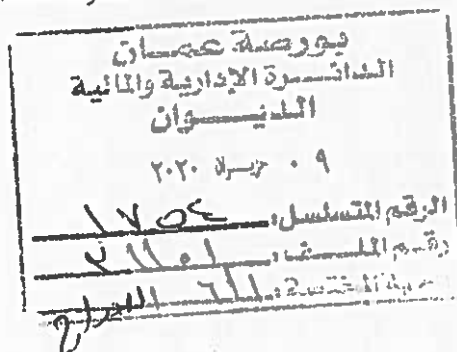 بورصة عمان
الدائرة الإدارية والمالية
الديوان
٠ ٩ حزيران ٢٠٢٠
الرقم المتسلسل: ١٧٥٤
رقم الملف:
الجهة المختصة: